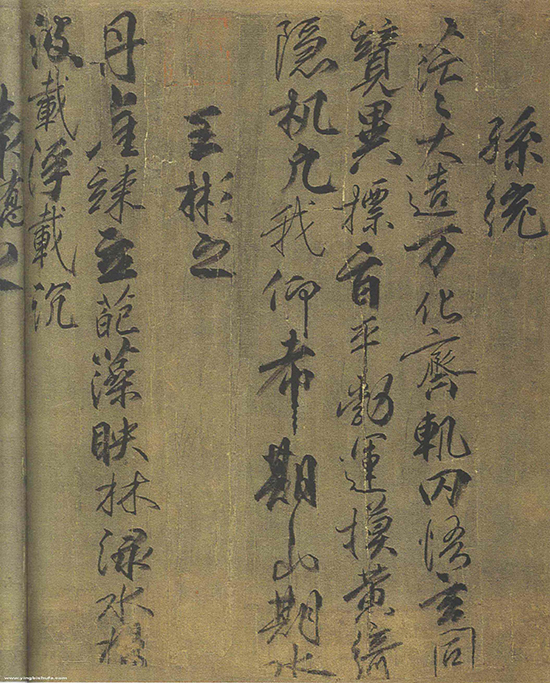 孫統
茫〻大造万化齊軌罔悟玄同
競異摽旨平勃運摸黄綺
隐机凡我仰希期山期水
王彬之
丹崖竦立葩藻映林渌水揚
波載浮載沉
www.yingbishufa.com